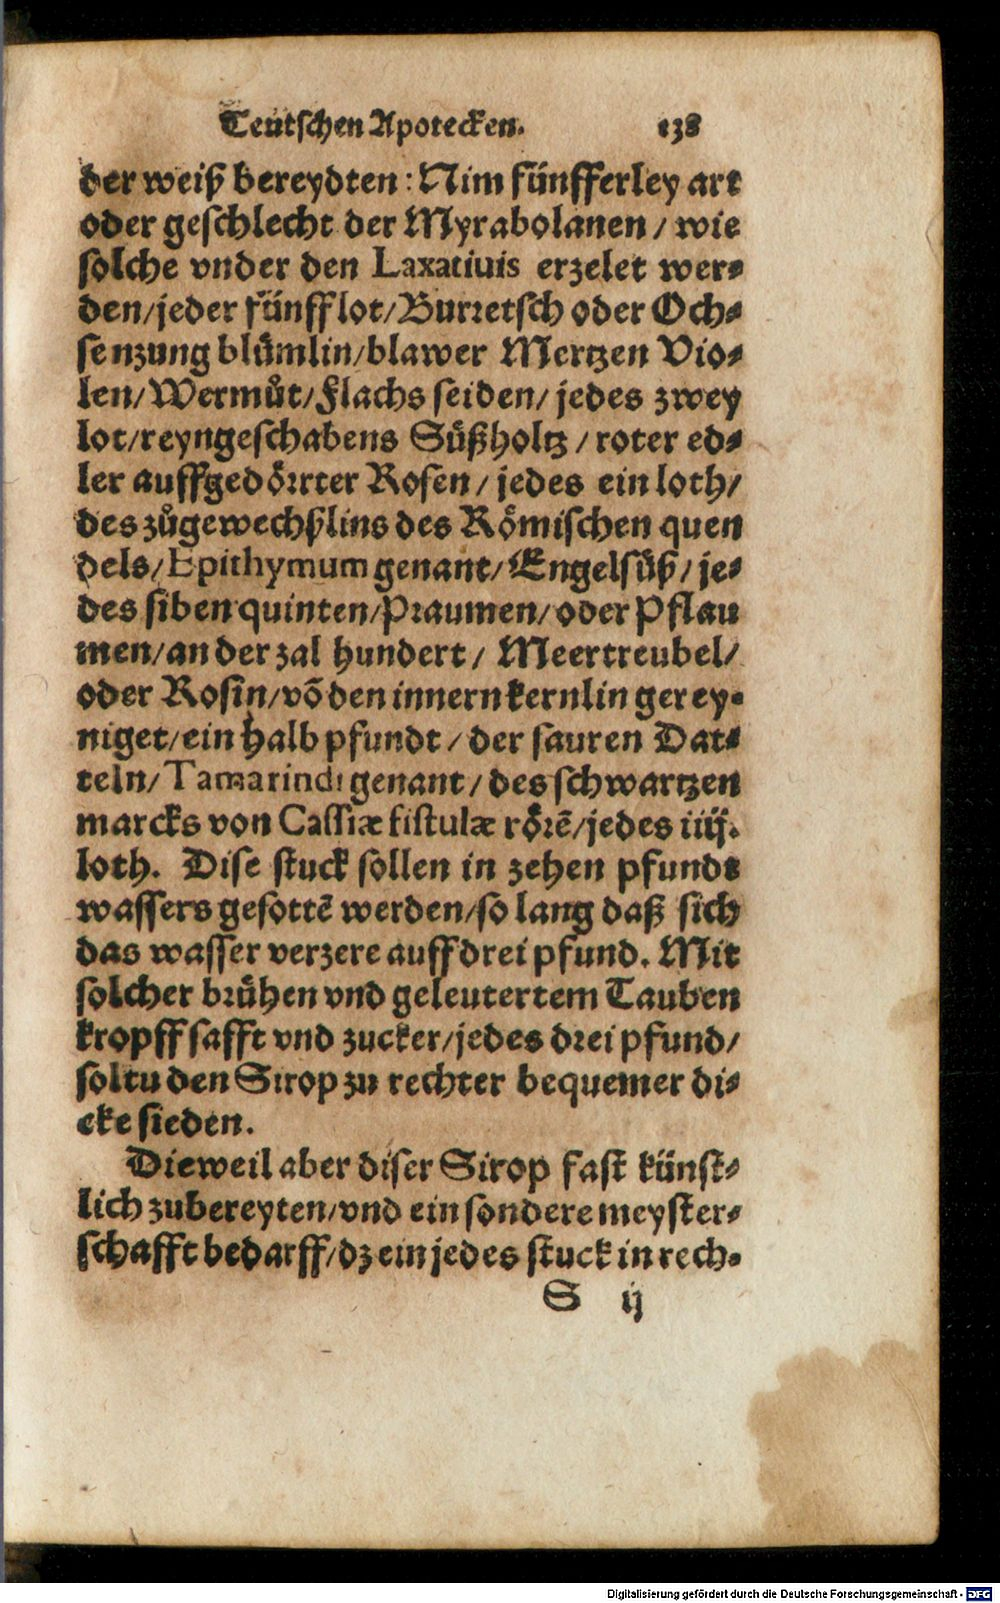 Teutschen Apotecken. 138
der weiß bereydten: Nim fünfferley art
oder geschlecht der Myrabolanen / wie
solche vnder den Laxatiuis erzelet wer-
den/jeder fünff lot/Burretsch oder Och-
senzung blümlin/blawer Mertzen Vio-
len/Wermůt/Flachs seiden/jedes zwey
lot/reyngeschabens Süßholtz / roter ed-
ler auffgedörrter Rosen/jedes ein loth/
des zůgewechßlins des Römischen quen
dels/Epithymum genant/Engelsüß/je-
des siben quinten/Praumen/oder Pflau
men/an der zal hundert/ Meertreubel/
oder Rosin/võ den innern kernlin gerey-
niget/ein halb pfundt/der sauren Dat-
teln/Tamarindi genant/des schwartzen
marcks von Cassiæ fistulæ rörẽ/jedes iiij.
loth. Dise stuck sollen in zehen pfundt
wassers gesottẽ werden/so lang daß sich
das wasser verzere auff drei pfund. Mit
solcher brühen vnd geleutertem Tauben
kropff safft vnd zucker/jedes drei pfund/
soltu den Sirop zu rechter bequemer di-
cke sieden.
Dieweil aber diser Sirop fast künst-
lich zubereyten/vnd ein sondere meyster-
schafft bedarff/dz ein jedes stuck in rech-
S ij
Digitalisierung gefördert durch die Deutsche Forschungsgemeinschaft - DFG